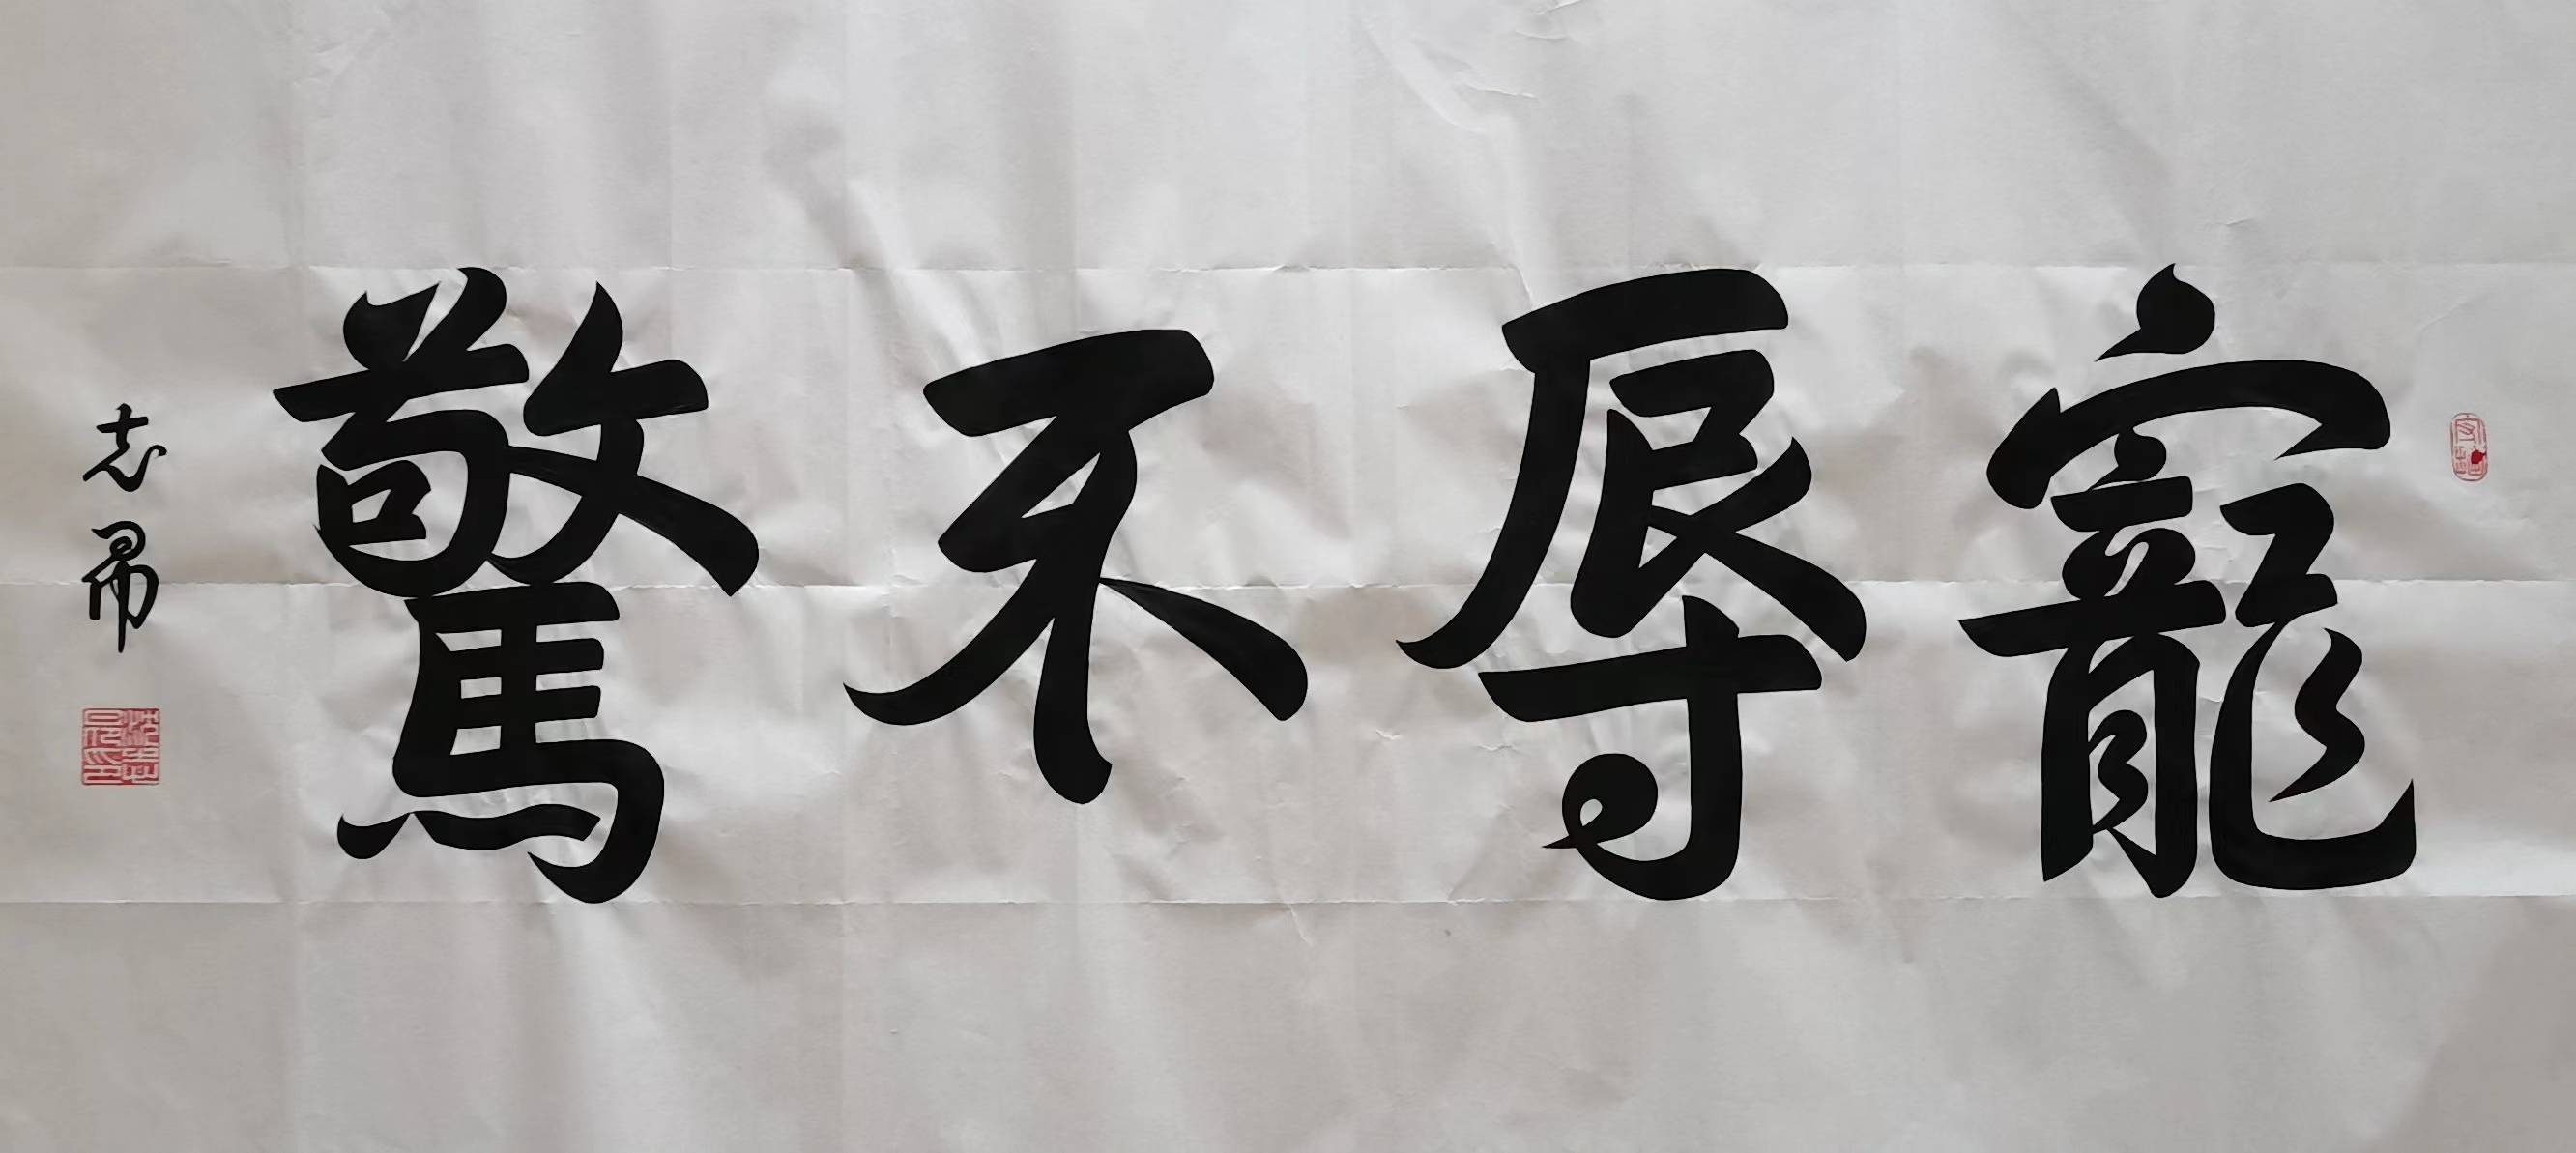 寵辱不驚
志昂